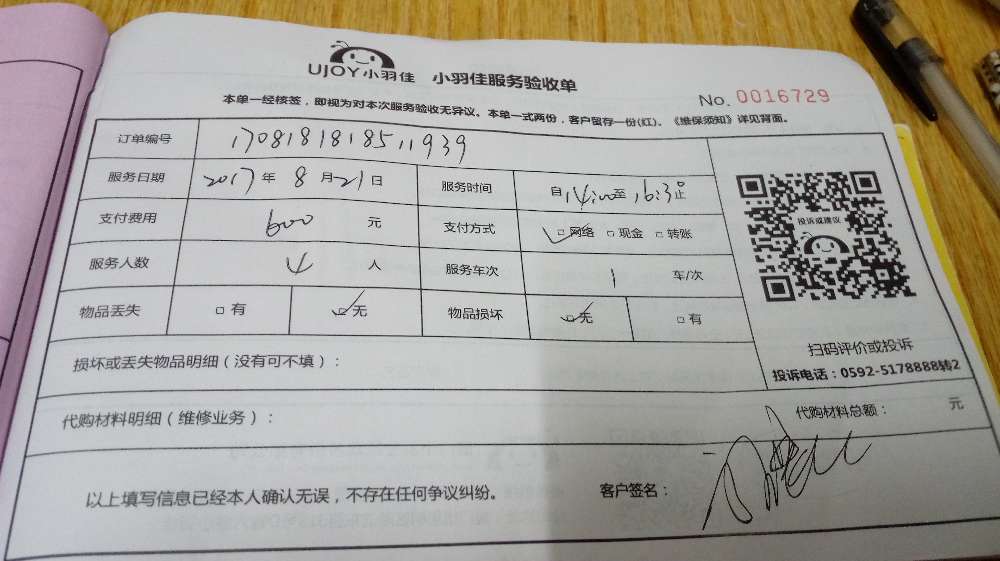 UJOY小羽佳 小羽佳服务验收单
No. 0016729
本单一经核签，即视为对本次服务验收无异议。本单一式两份，客户留存一份(红)。《维保须知》详见背面。
订单编号 170818181851193​9
服务日期 2017年8月21日 服务时间 自14:00至16:30止
支付费用 600 元 支付方式 ☑网络 □现金 □转账
服务人数 4 人 服务车次 1 车/次
物品丢失 □有 ☑无 物品损坏 ☑无 □有
投诉或建议
扫码评价或投诉
投诉电话：0592-5178888转2
损坏或丢失物品明细（没有可不填）：
代购材料明细（维修业务）： 代购材料总额： 元
以上填写信息已经本人确认无误，不存在任何争议纠纷。 客户签名：